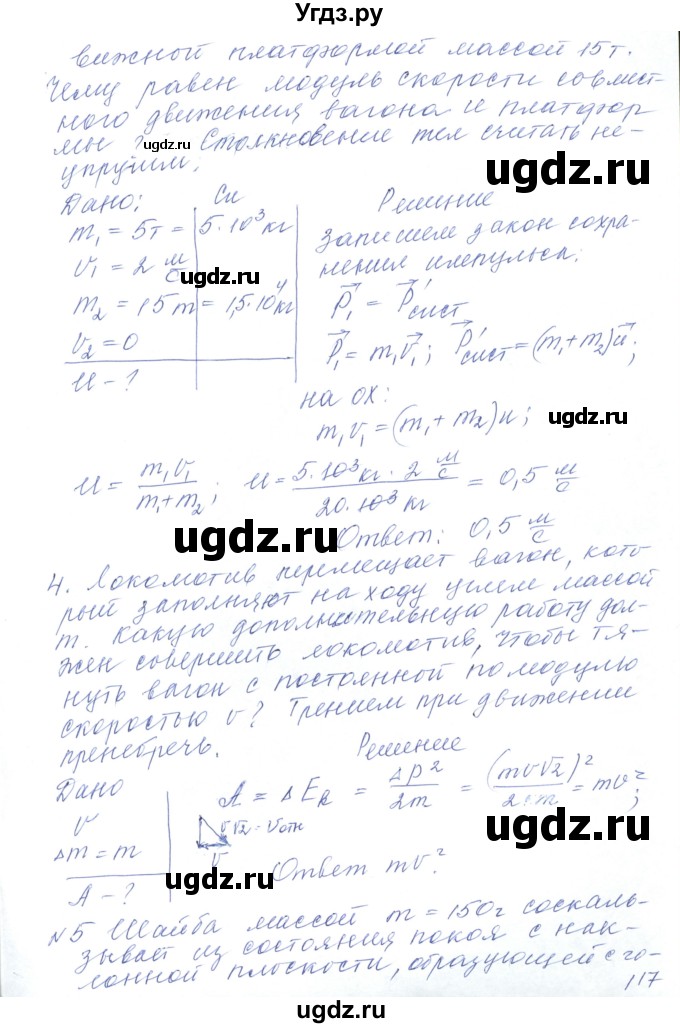 Угдз.ру
вижной платформой массой 15т.
Чему равен модуль скорости совмест-
ного движения вагона и платфор
мы ? Столкновение тел считать не-
упругим.
ugdz.ru
Дано: Си Решение
m₁ = 5т = 5·10³ кг
v₁ = 2 м/с
m₂ = 15т = 1,5·10⁴ кг
v₂ = 0
u - ?
ugdz.ru
Запишем закон сохра-
нения импульса:
P⃗₁ = P⃗'сист
P⃗₁ = m₁v⃗₁; P⃗'сист = (m₁+m₂)u⃗;
на ох:
m₁v₁ = (m₁ + m₂)u;
ugdz.ru
u = m₁v₁/(m₁+m₂); u = 5·10³кг · 2 м/с / 20·10³ кг = 0,5 м/с
ugdz.ru
Ответ: 0,5 м/с
4. Локомотив перемещает вагон, кото
рый заполняют на ходу углем массой
m. Какую дополнительную работу дол-
жен совершить локомотив, чтобы тя-
нуть вагон с постоянной по модулю
скоростью v? Трением при движении
пренебречь.
ugdz.ru
Решение
Дано
v
Δm = m
A - ?
A = ΔEк = Δp²/2m = (mv√2)²/2·m = mv²;
v√2 = vотн
v
Ответ mv².
ugdz.ru
ugdz.ru
№5 Шайба массой m = 150г соскаль-
зывает из состояния покоя с нак-
лонной плоскости, образующей с го-
117
ugdz.ru
ugdz.ru